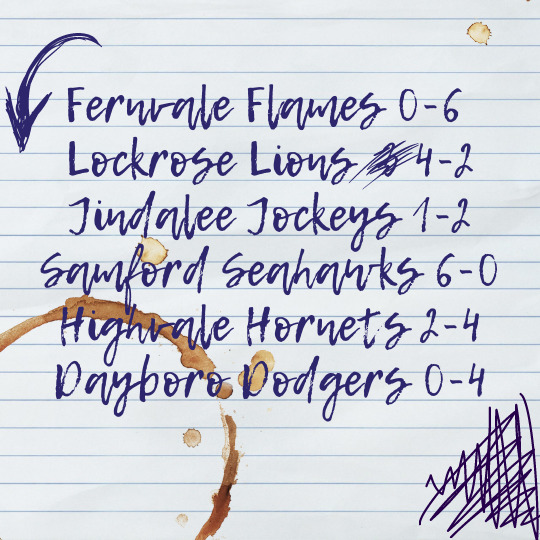 Fernvale Flames 0-6
Lockrose Lions 4-2
Jindalee Jockeys 1-2
Samford Seahawks 6-0
Highvale Hornets 2-4
Dayboro Dodgers 0-4